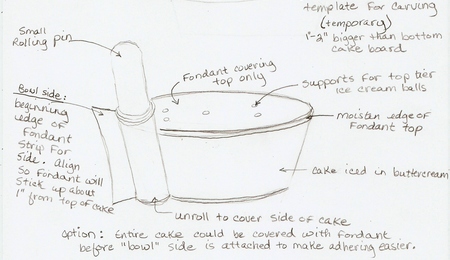 template for carving
(temporary)
1"-2" bigger than bottom
cake board
Small
Rolling pin
Fondant covering
top only
supports for top tier
ice cream balls
moisten edge of
Fondant top
Bowl side:
beginning
edge of
fondant
strip for
side. Align
so fondant will
stick up about
1" from top of cake
cake iced in buttercream
unroll to cover side of cake
option: Entire cake could be covered with fondant
before "bowl" side is attached to make adhering easier.